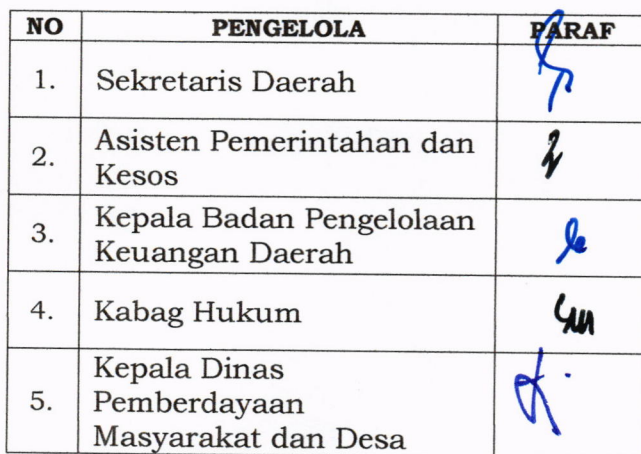 NO PENGELOLA PARAF
1. Sekretaris Daerah
2. Asisten Pemerintahan dan
Kesos
3. Kepala Badan Pengelolaan
Keuangan Daerah
4. Kabag Hukum
5. Kepala Dinas
Pemberdayaan
Masyarakat dan Desa